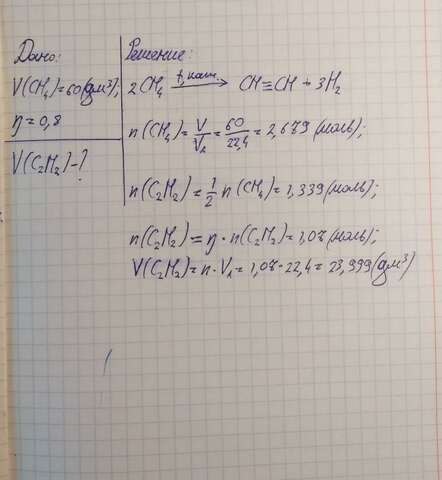 Дано:
V(CH₄)=60(дм³);
η=0,8
V(C₂H₂)-?
Решение:
2CH₄ t,кат. → CH≡CH + 3H₂
n(CH₄)=V/V₁=60/22,4=2,679(моль);
n(C₂H₂)=1/2 n(CH₄)=1,339(моль);
n(C₂H₂)=η·n(C₂H₂)=1,07(моль);
V(C₂H₂)=n·V₁=1,07·22,4=23,999(дм³)